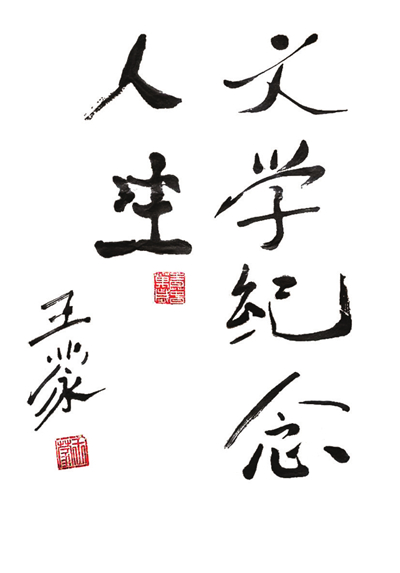 文学纪念
人生
王蒙